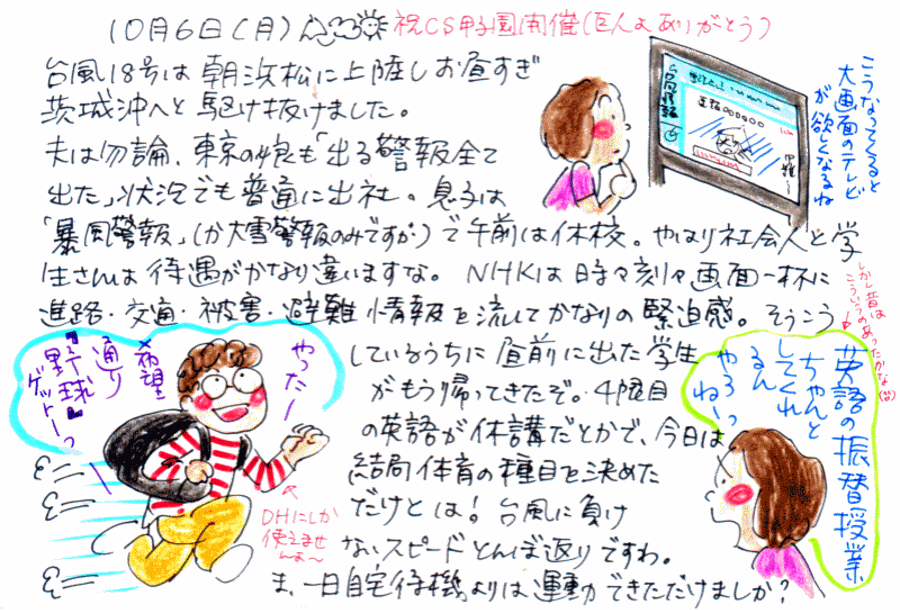 10月6日(月)
祝CS甲子園開催(巨人よありがとう)
台風18号は朝浜松に上陸しお昼すぎ
茨城沖へと駆け抜けました。
夫は勿論、東京の娘も「出る警報全て
出た」状況でも普通に出社。息子は
「暴風警報」(か大雪警報のみですが)で午前は休校。やはり社会人と学
生さんは待遇がかなり違いますな。NHKは時々刻々画面一杯に
進路・交通・被害・避難情報を流してかなりの緊迫感。そうこう
しているうちに昼前に出た学生
がもう帰ってきたぞ。4限目
の英語が休講だとかで、今日は
結局体育の種目を決めた
だけとは!台風に負け
ないスピードとんぼ返りですわ。
ま、一日自宅待機よりは運動できただけましか?
こうなってくると
大画面のテレビ
が欲しくなるね
台風情報
しかし昔は
こういうのあったかな(笑)
英語の振替授業
ちゃんと
してくれ
るん
やろっ
ねーっ
やったー
希望
通り
『野球』
ゲットーっ
DHにしか
使えませ
んよ〜